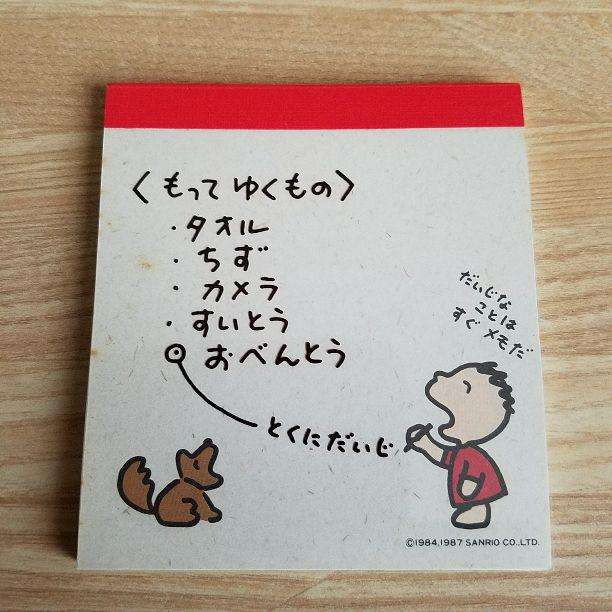 〈もって ゆくもの〉
・タオル
・ちず
・カメラ
・すいとう
◎ おべんとう
とくにだいじ
だいじな
ことは
すぐ メモだ
©1984,1987 SANRIO CO.,LTD.